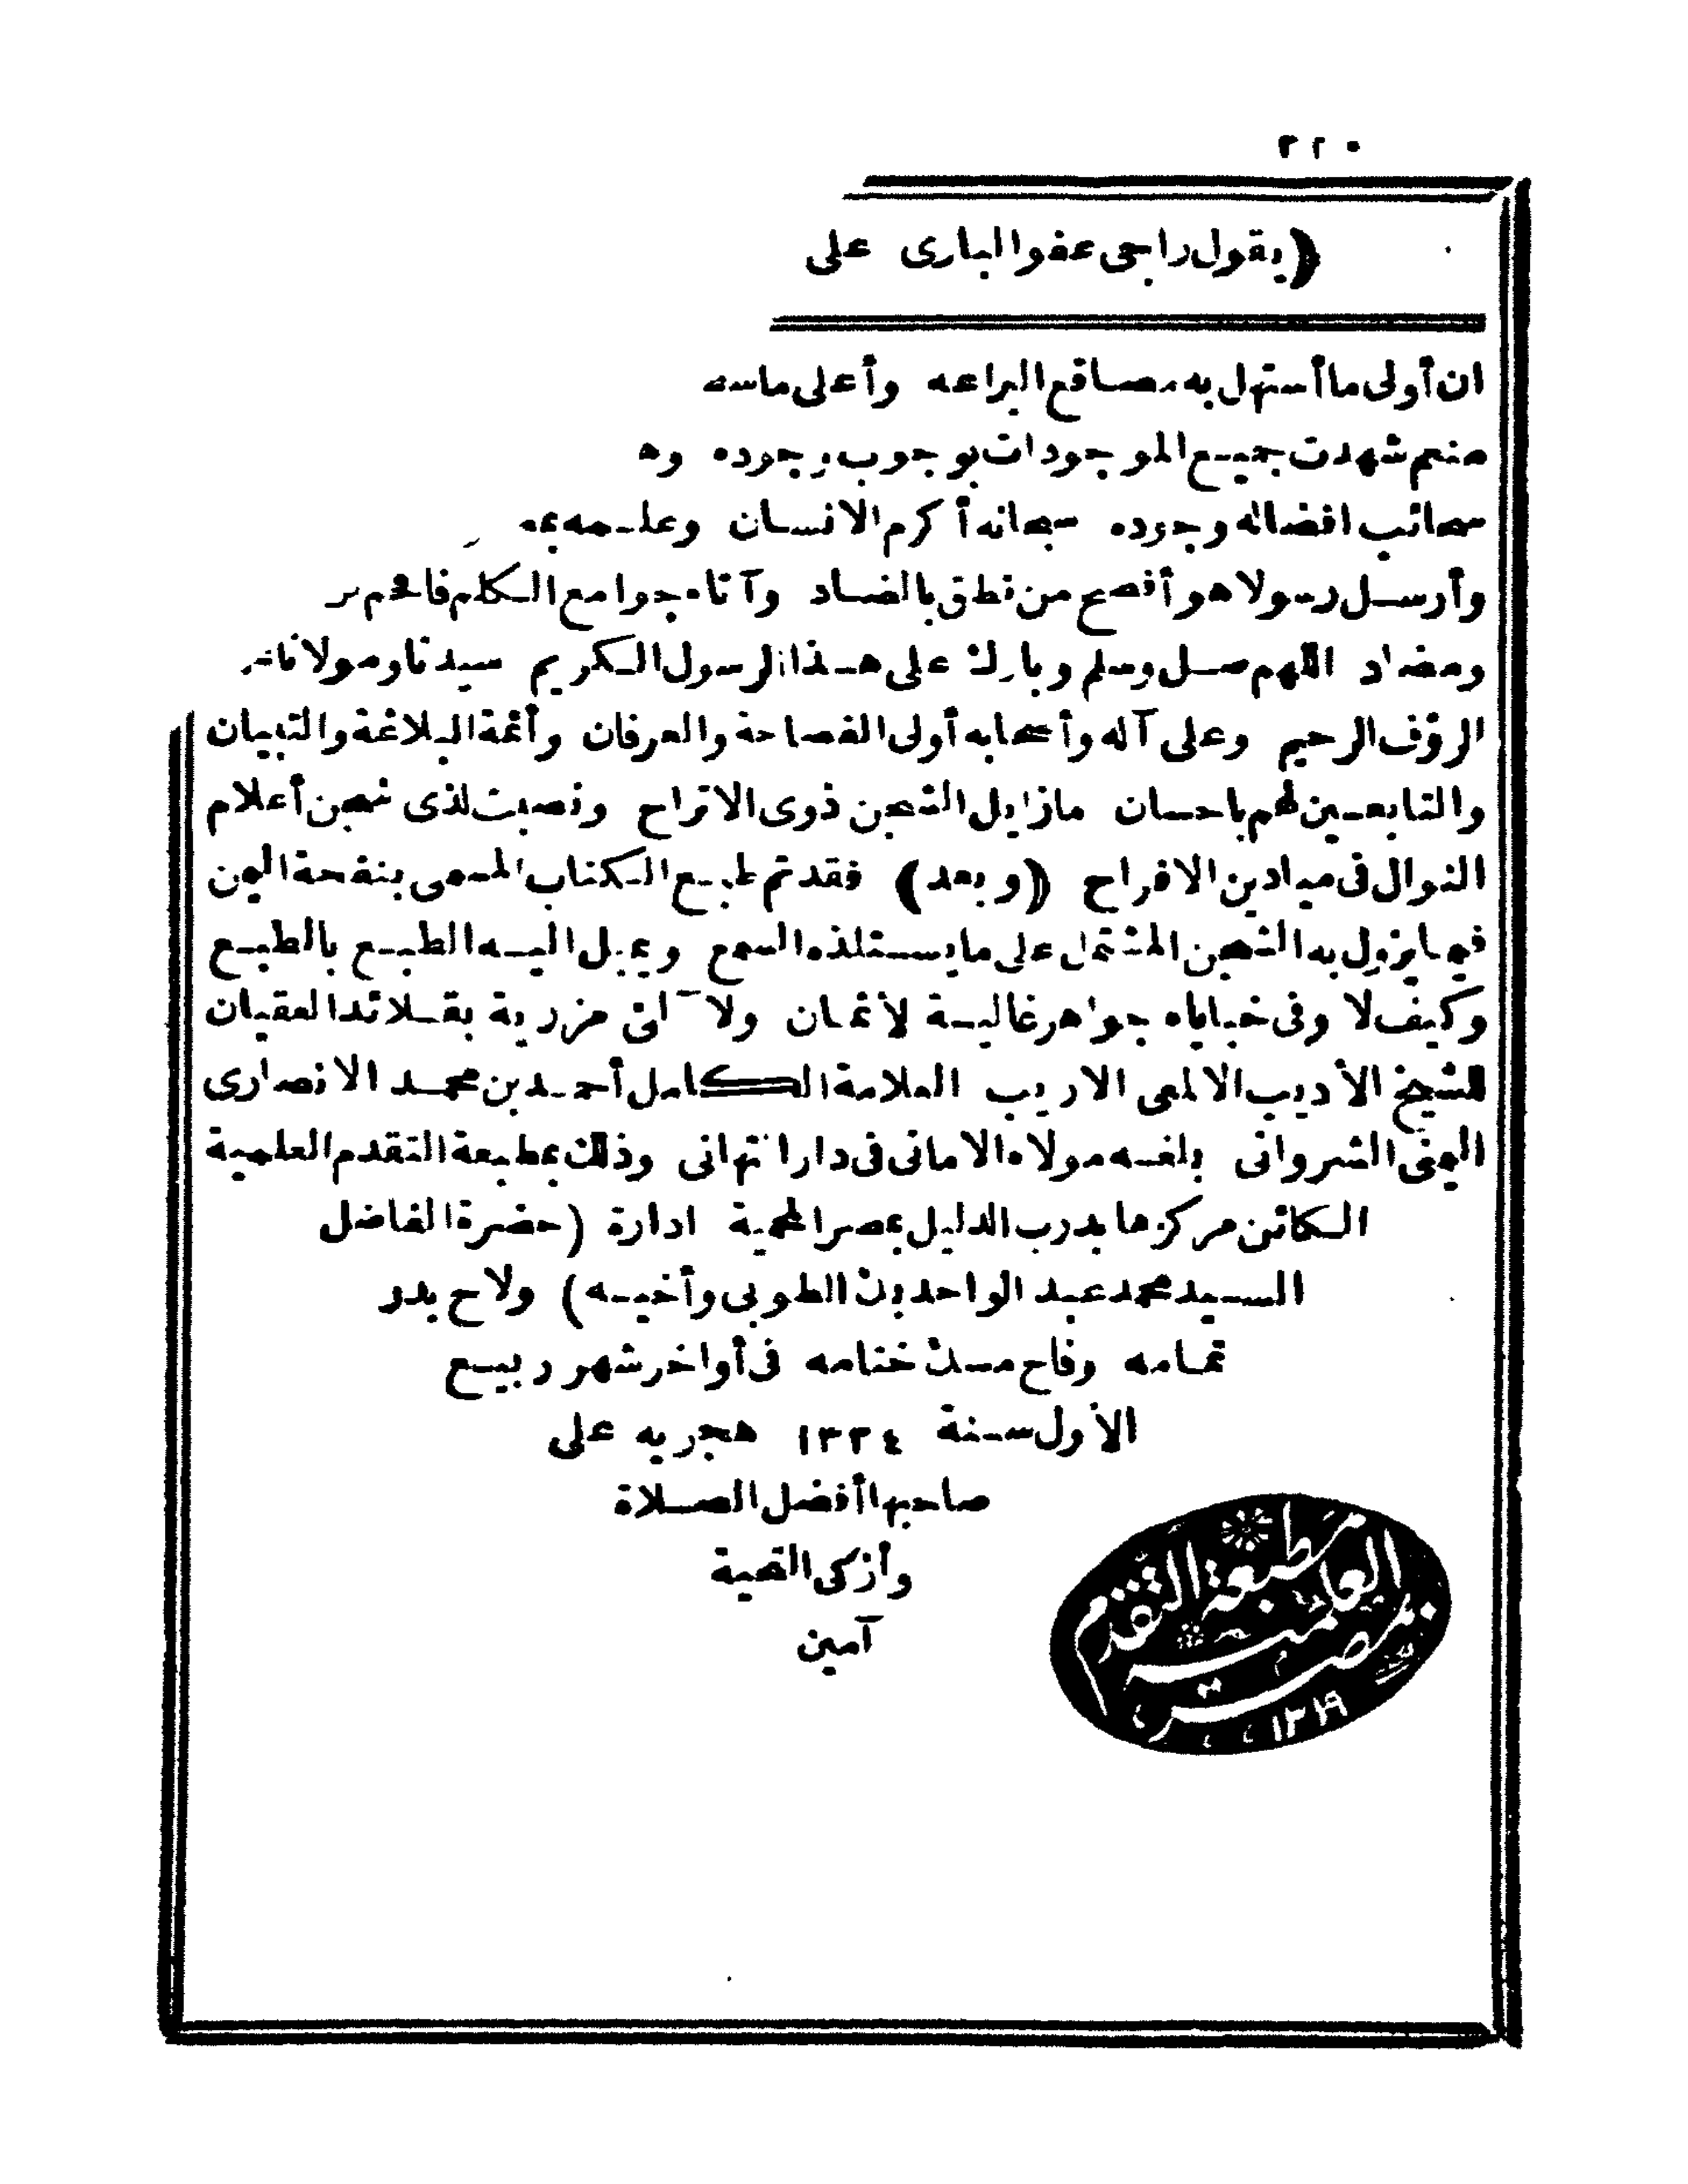 ٢٢٠
(يقول راجى عفو البارى على
ان أولى ما أستهل به مصاقع البراعه وأعلى
منعم شهدت جميع الموجودات بوجوب وجوده
سحائب افضاله وجوده سبحانه أكرم الانسان وعلمه
وأرسل رسولا هو أفصح من نطق بالضاد وآتاه جوامع الكلم فافحم
ومضاد اللهم صل وسلم وبارك على هذا الرسول الكريم سيدنا ومولانا
الرؤف الرحيم وعلى آله وأصحابه أولى الفصاحة والعرفان وأئمة البلاغة والتبيان
والتابعين لهم باحسان مازايل الشجن ذوى الاتراح ونصبت لذى شجن أعلام
النوال فى ميادين الافراح (وبعد) فقد تم طبع الكتاب المسمى بنفحة اليمن
فيما يزول به الشجن المشتمل على ما يستلذه السمع ويميل اليه الطبع بالطبع
وكيف لا وفى خباياه جواهر غالية الأثمان ولآلئ مزرية بقلائد العقيان
للشيخ الأديب الالمعى الاريب العلامة الكامل أحمد بن محمد الانصارى
اليمنى الشروانى بلغه مولاه الامانى فى دار التهانى وذلك بمطبعة التقدم العلمية
الكائن مركزها بدرب الدليل بمصر المحمية ادارة (حضرة الفاضل
السيد محمد عبد الواحد بك الطوبى وأخيه) ولاح بدر
تمامه وفاح مسك ختامه فى أواخر شهر ربيع
الأول سنة ١٣٢٤ هجريه على
صاحبها أفضل الصلاة
وأزكى التحية
آمين
مطبعة التقدم
العلمية
بمصر
١٣١٩